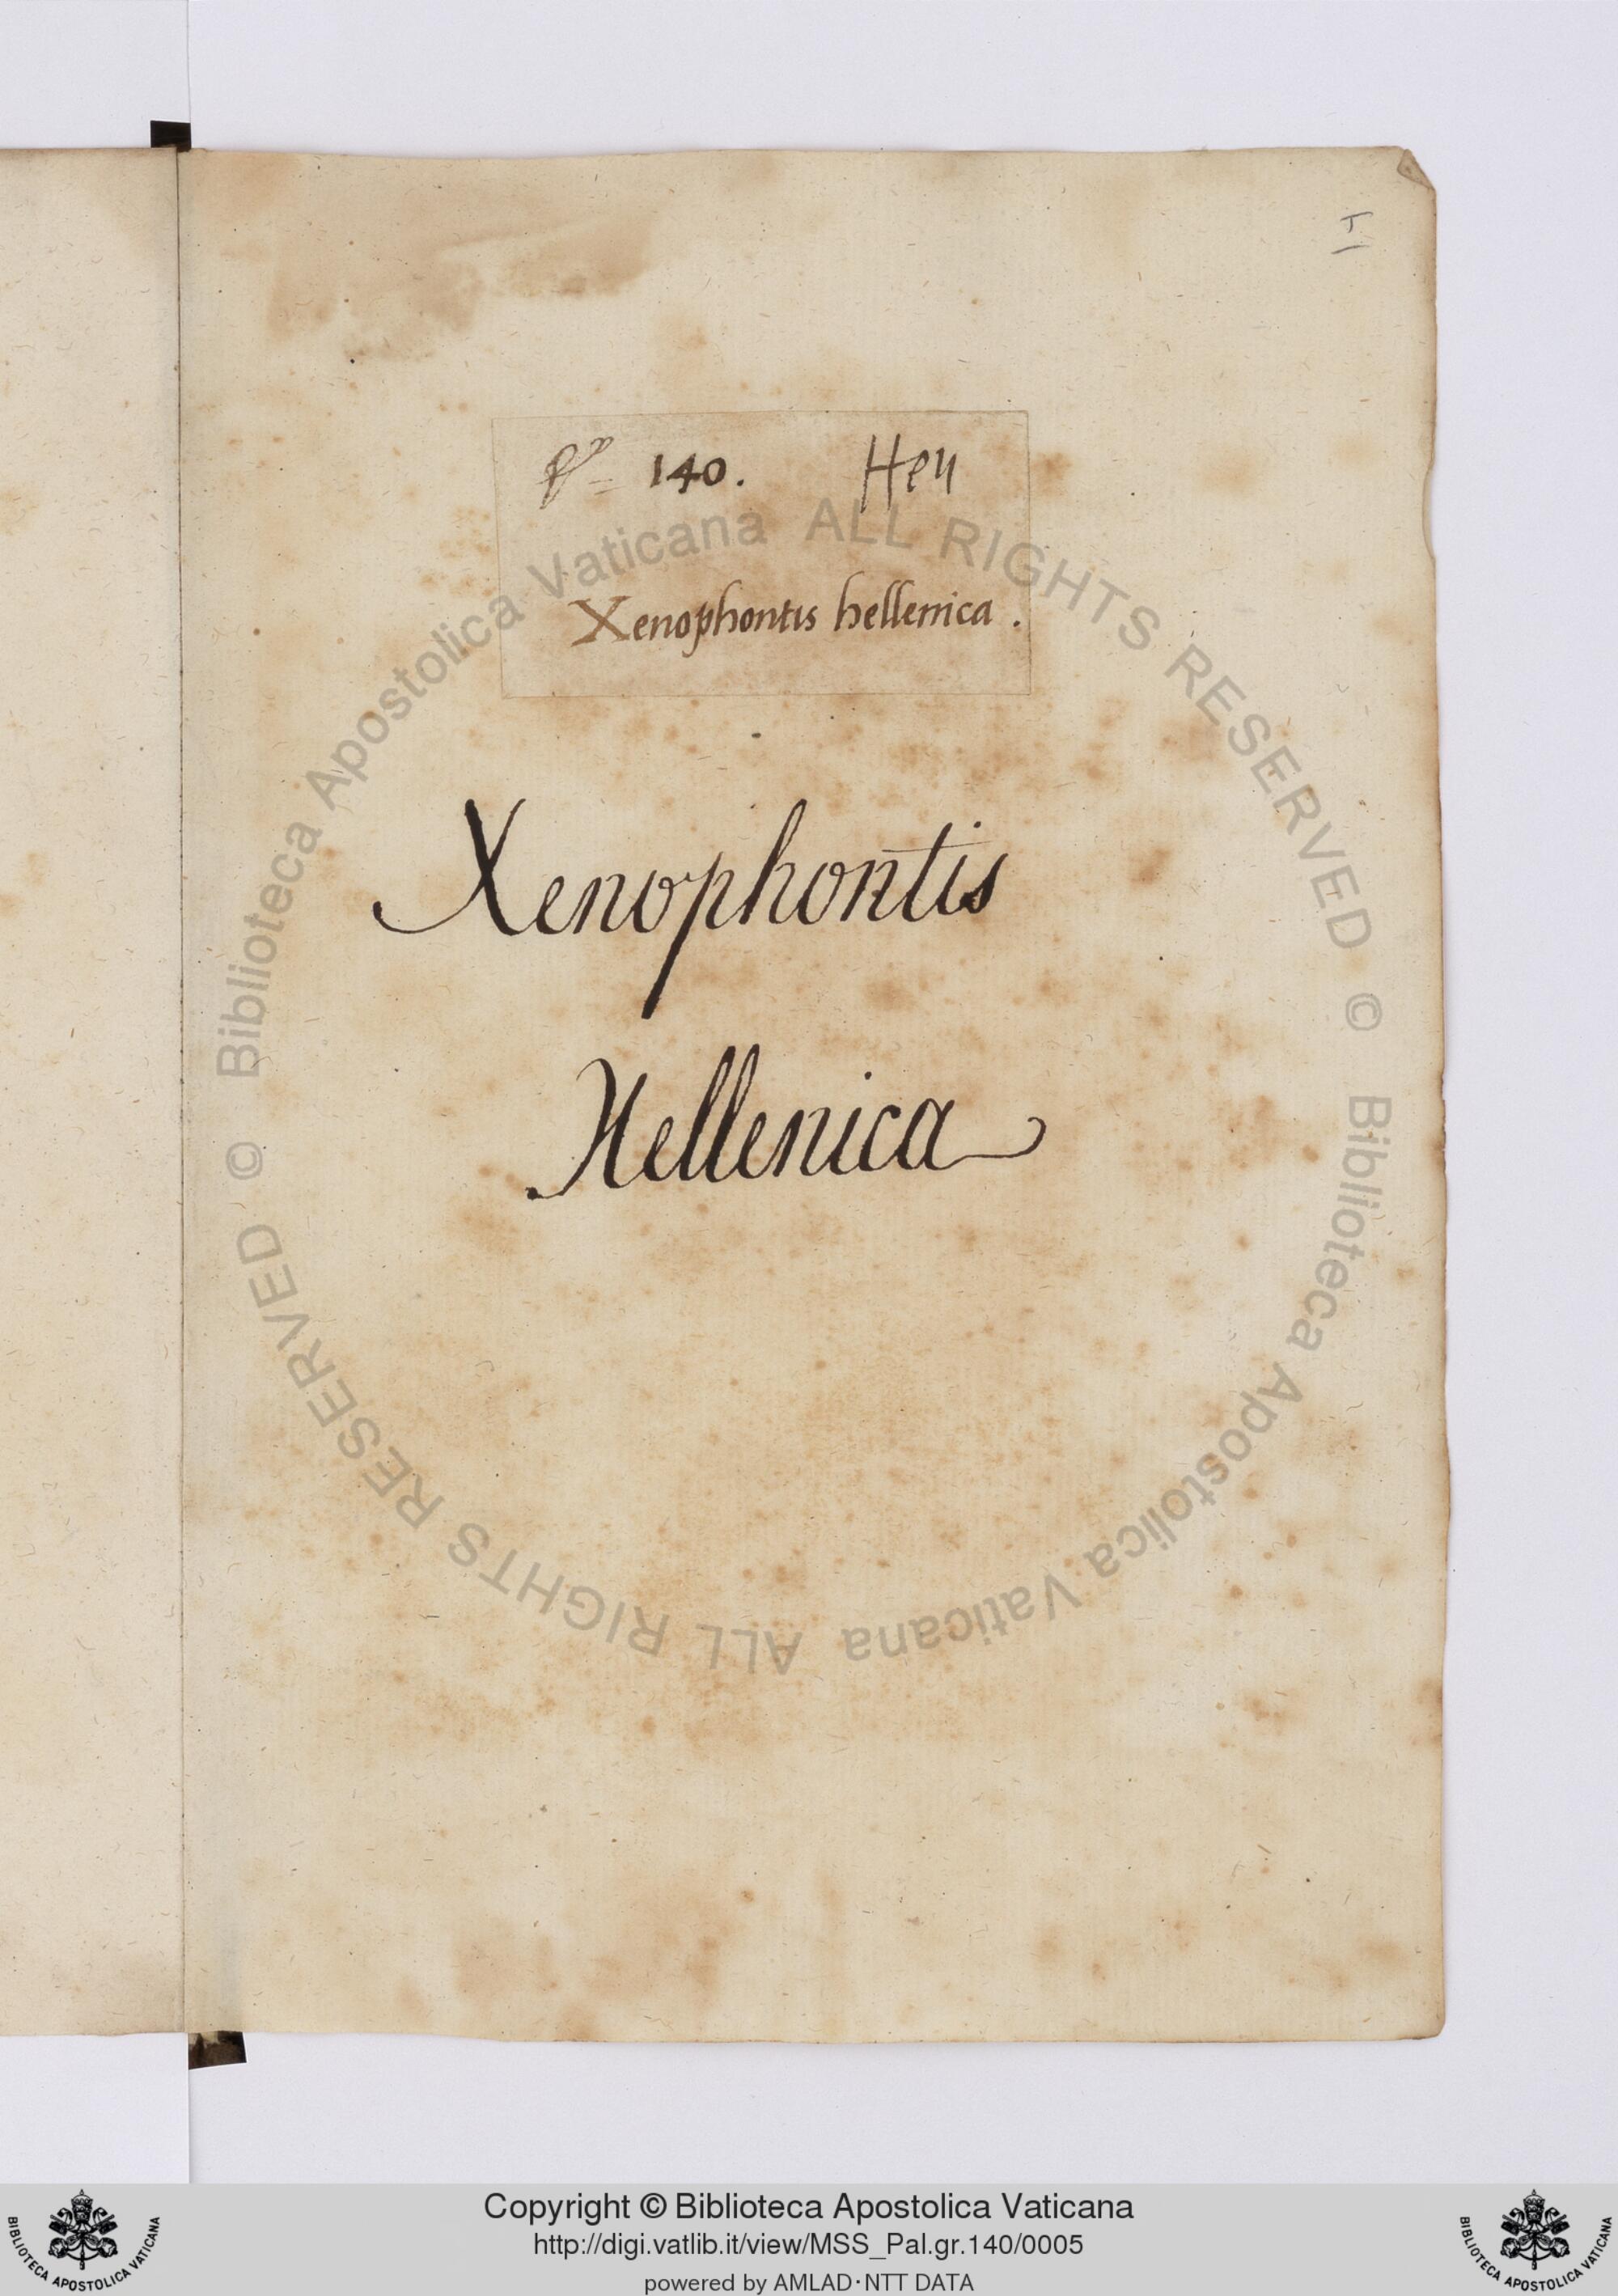 I
140. Hen
Xenophontis hellenica.
Xenophontis
Hellenica
© Biblioteca Apostolica Vaticana ALL RIGHTS RESERVED
© Biblioteca Apostolica Vaticana ALL RIGHTS RESERVED
BIBLIOTECA APOSTOLICA VATICANA
Copyright © Biblioteca Apostolica Vaticana
http://digi.vatlib.it/view/MSS_Pal.gr.140/0005
powered by AMLAD·NTT DATA
BIBLIOTECA APOSTOLICA VATICANA